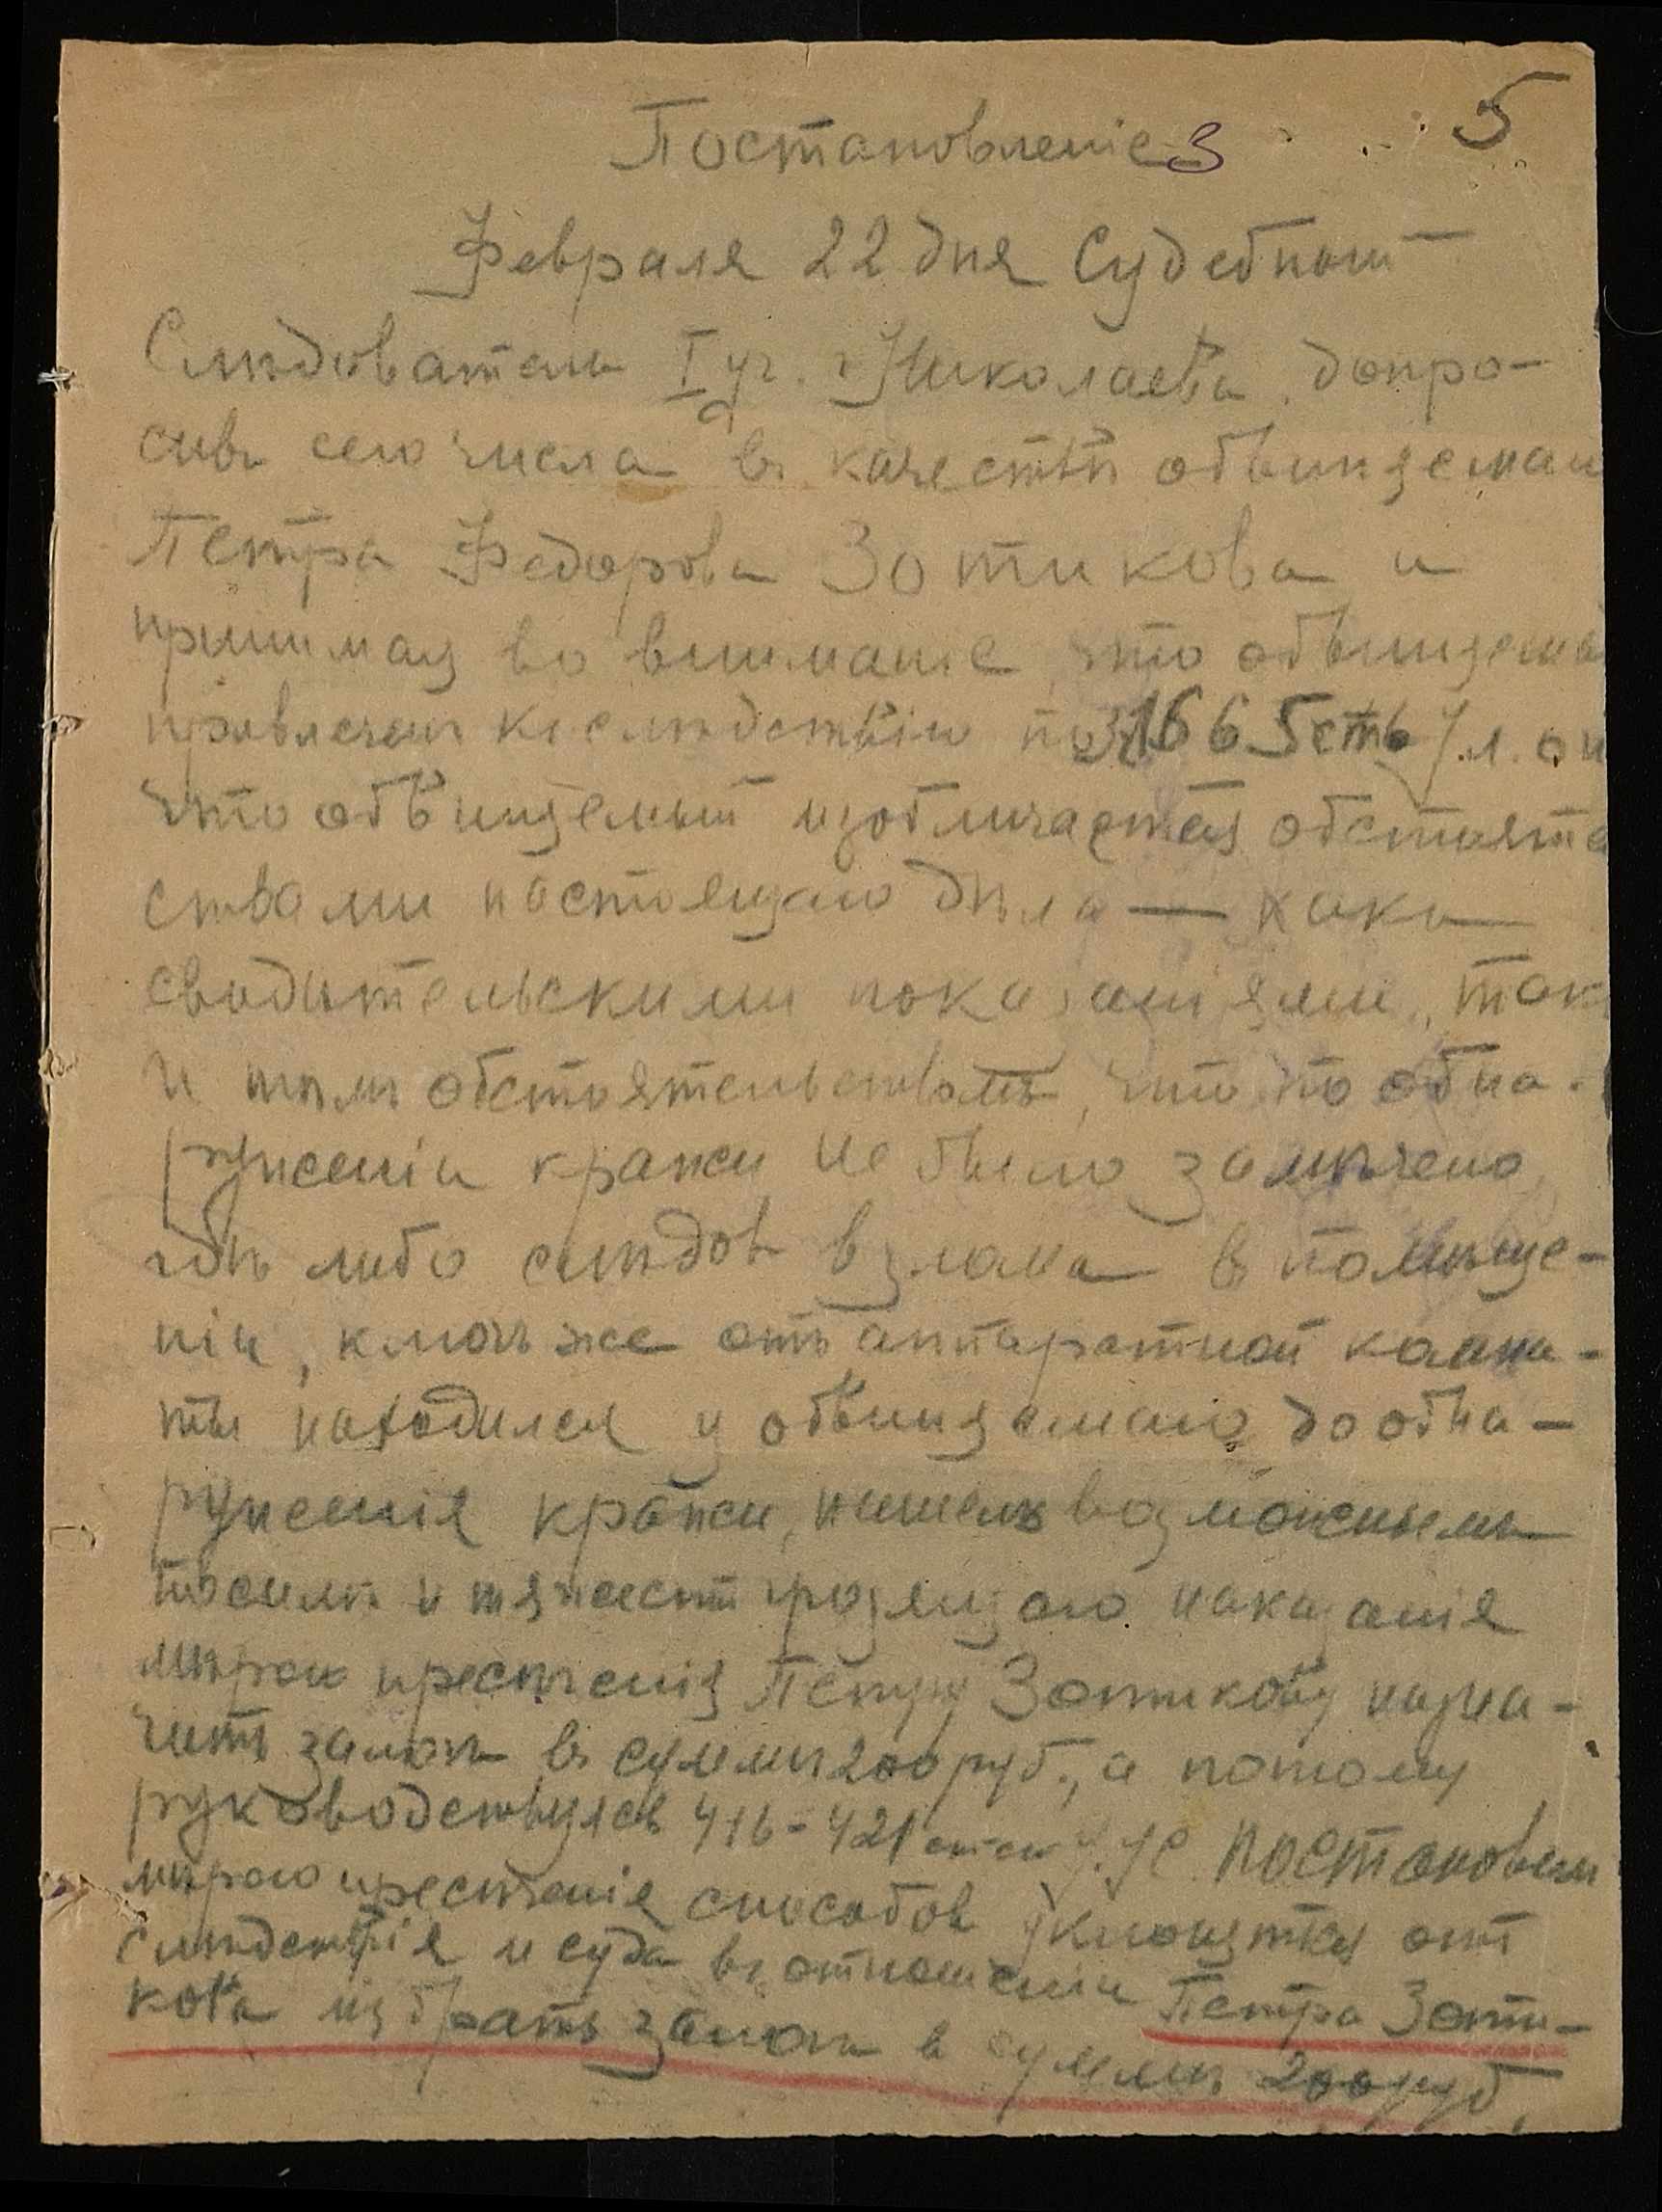 5
Постановленіе 3
Февраля 22 дня Судебный
Слѣдователь I уч. г. Николаева, допро-
сивъ сего числа въ качествѣ обвиняемаго
Петра Федорова Зотикова и
принимая во вниманіе, что обвиняемый
привлеченъ къ слѣдствію по 1 665 ст.
что обвиняемый изобличается обстоятел
ствами настоящаго дѣла — какъ
свидѣтельскими показаніями, такъ
и тѣмъ обстоятельствомъ, что по обна-
руженіи кражи не было замѣчено
гдѣ либо слѣдовъ взлома въ помѣще-
ніи, ключъ же отъ аппаратной комна-
ты находился у обвиняемаго до обна-
руженія кражи, возможнымъ
и тяжест грозящаго наказанія
мѣрою пресѣченія Петру Зотикову назна-
чить залогъ въ суммѣ 200 руб., а потому
руководствуясь 416-421 ст ст У. У. С. постановилъ
мѣрою пресѣченія способовъ уклоняться отъ
слѣдствія и суда въ отношеніи Петра Зоти-
кова избрать залогъ въ суммѣ 200 руб.